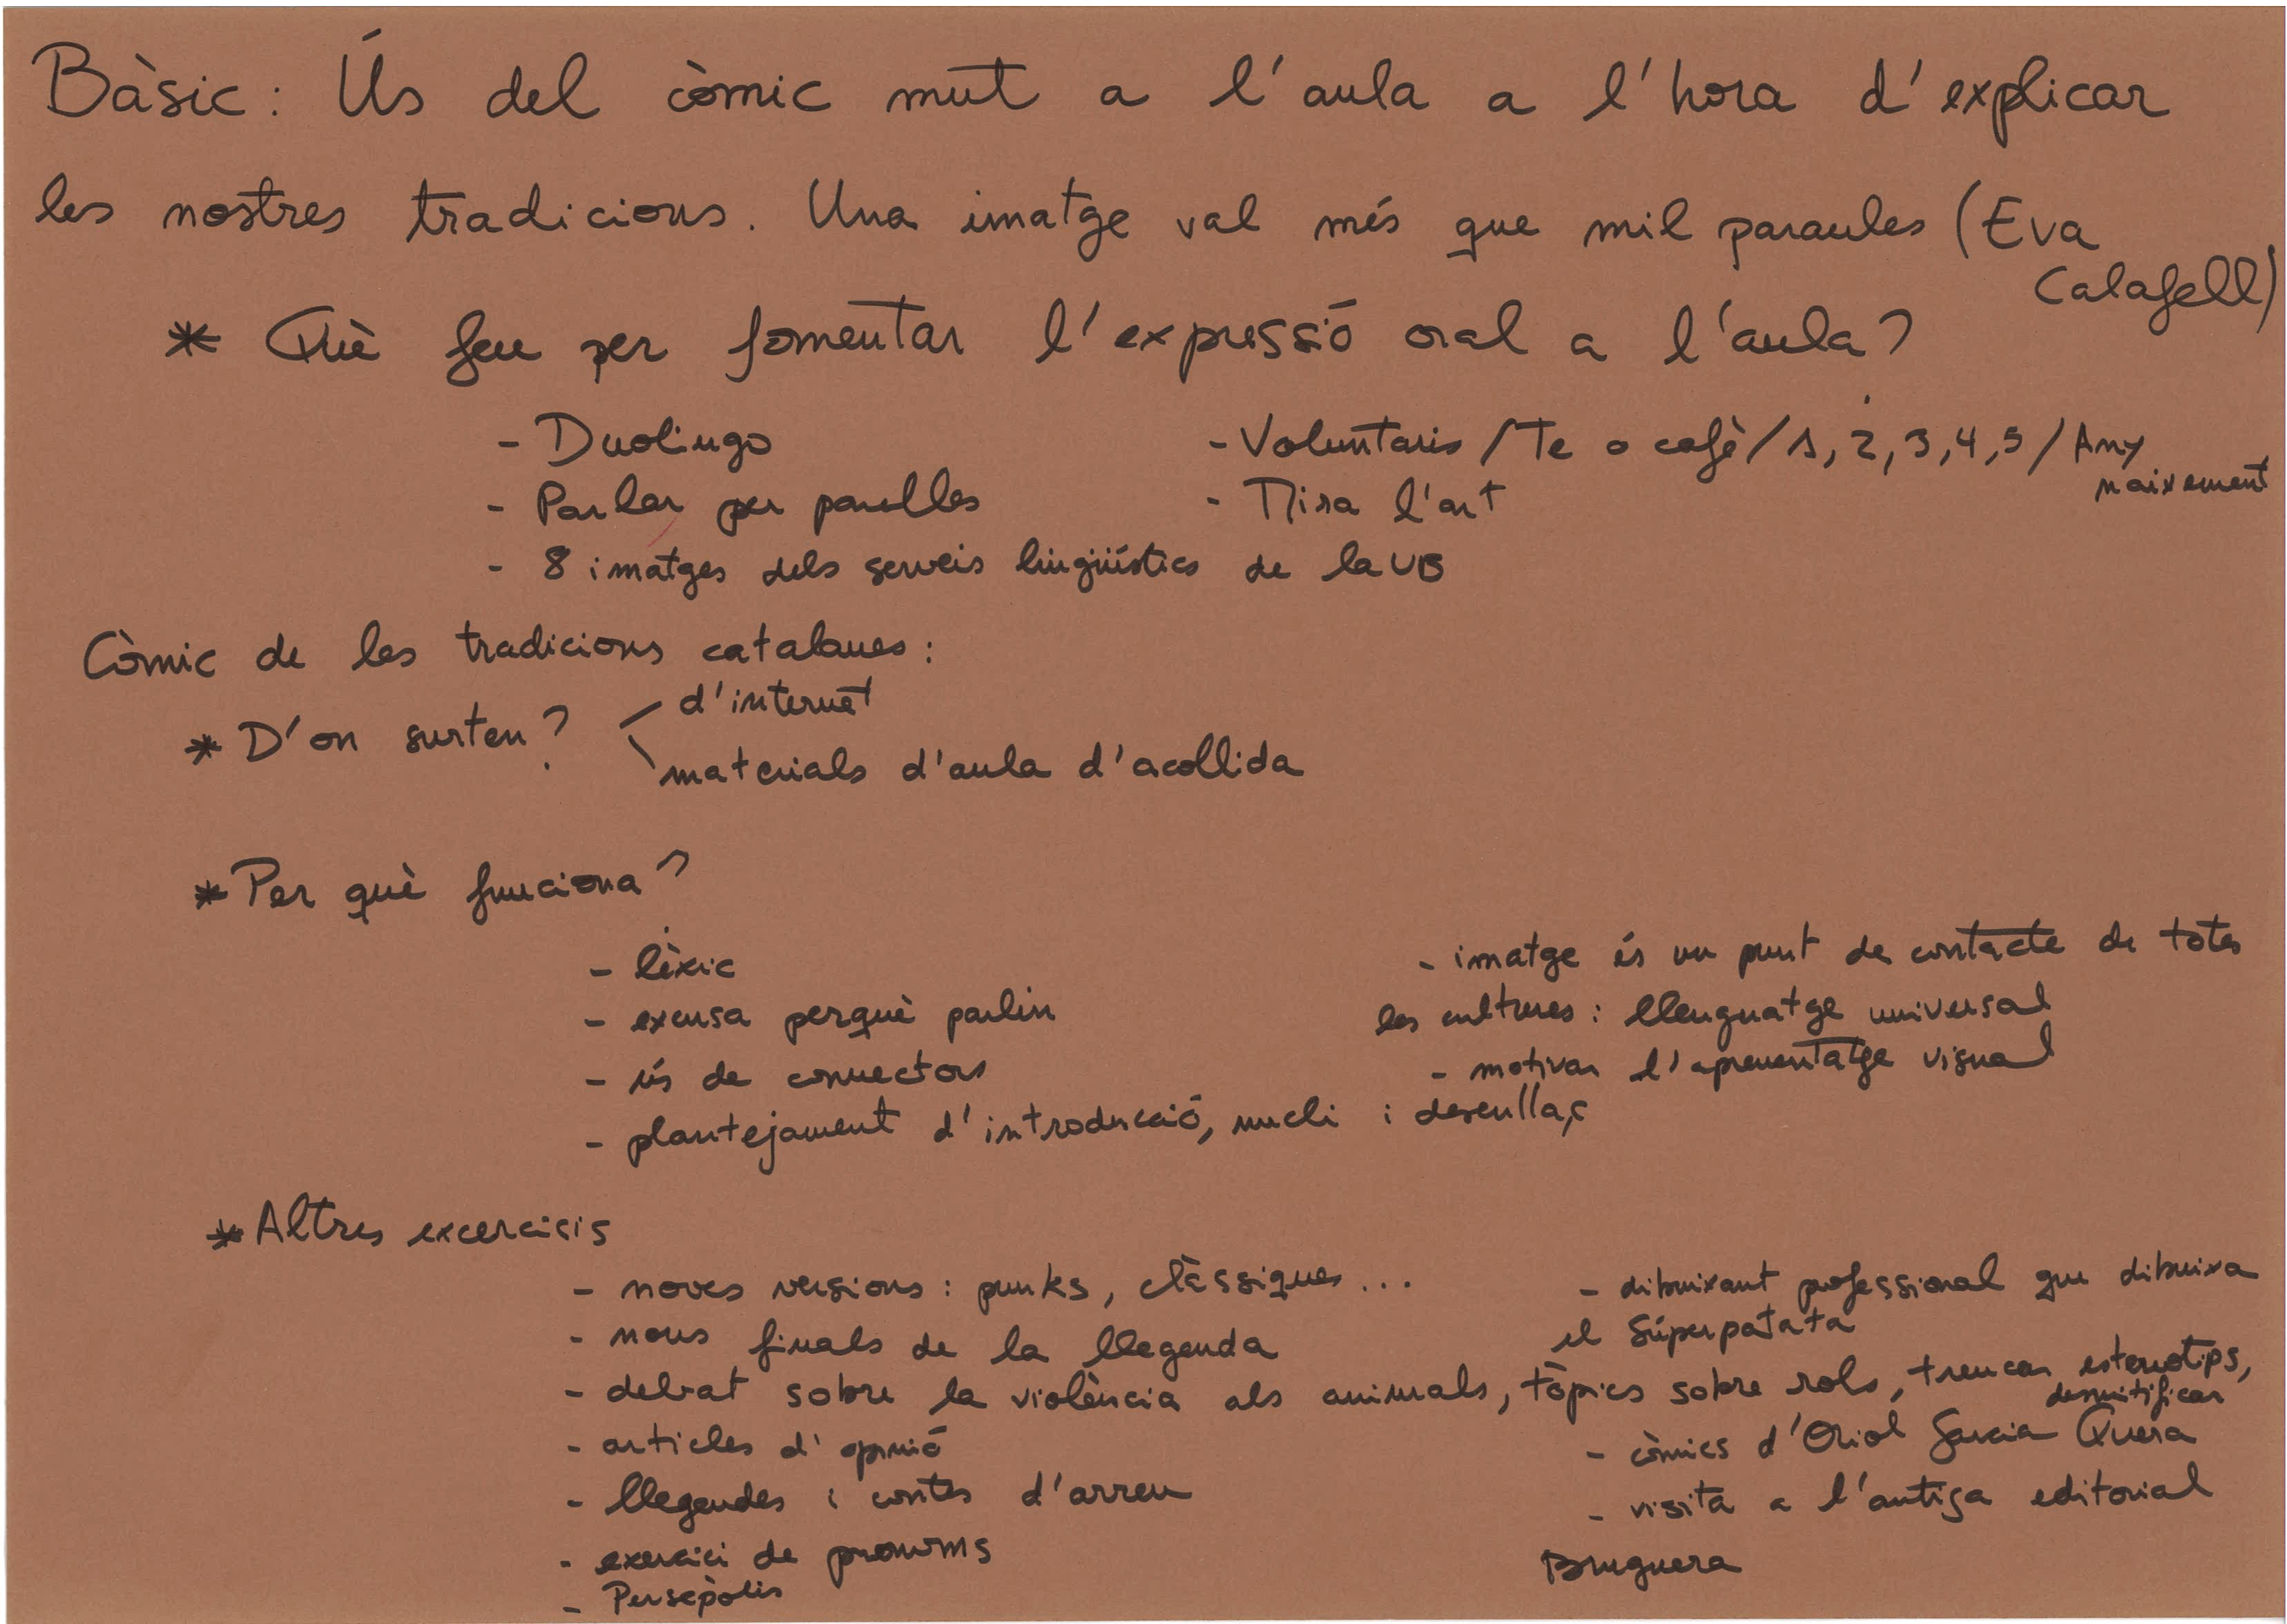 Bàsic: Ús del còmic mut a l'aula a l'hora d'explicar
les nostres tradicions. Una imatge val més que mil paraules (Eva
Calafell)
* Què feu per fomentar l'expressió oral a l'aula?
- Duolingo
- Parlar per parelles
- 8 imatges dels serveis lingüístics de la UB
- Voluntaris / Te o cafè / 1, 2, 3, 4, 5 / Any
naixement
- Mira l'art
Còmic de les tradicions catalanes:
* D'on surten?
d'internet
materials d'aula d'acollida
* Per què funciona?
- lèxic
- excusa perquè parlin
- ús de connectors
- plantejament d'introducció, nucli i desenllaç
- imatge és un punt de contacte de totes
les cultures: llenguatge universal
- motivar l'aprenentatge visual
* Altres excercisis
- noves versions: punks, clàssiques...
- nous finals de la llegenda
- debat sobre la violència als animals, tòpics sobre rols, trencar estereotips,
desmitificar
- articles d'opinió
- llegendes i contes d'arreu
- exercici de pronoms
- Persèpolis
- dibuixant professional que dibuixa
el Súperpatata
- còmics d'Oriol Garcia Quera
- visita a l'antiga editorial
Bruguera